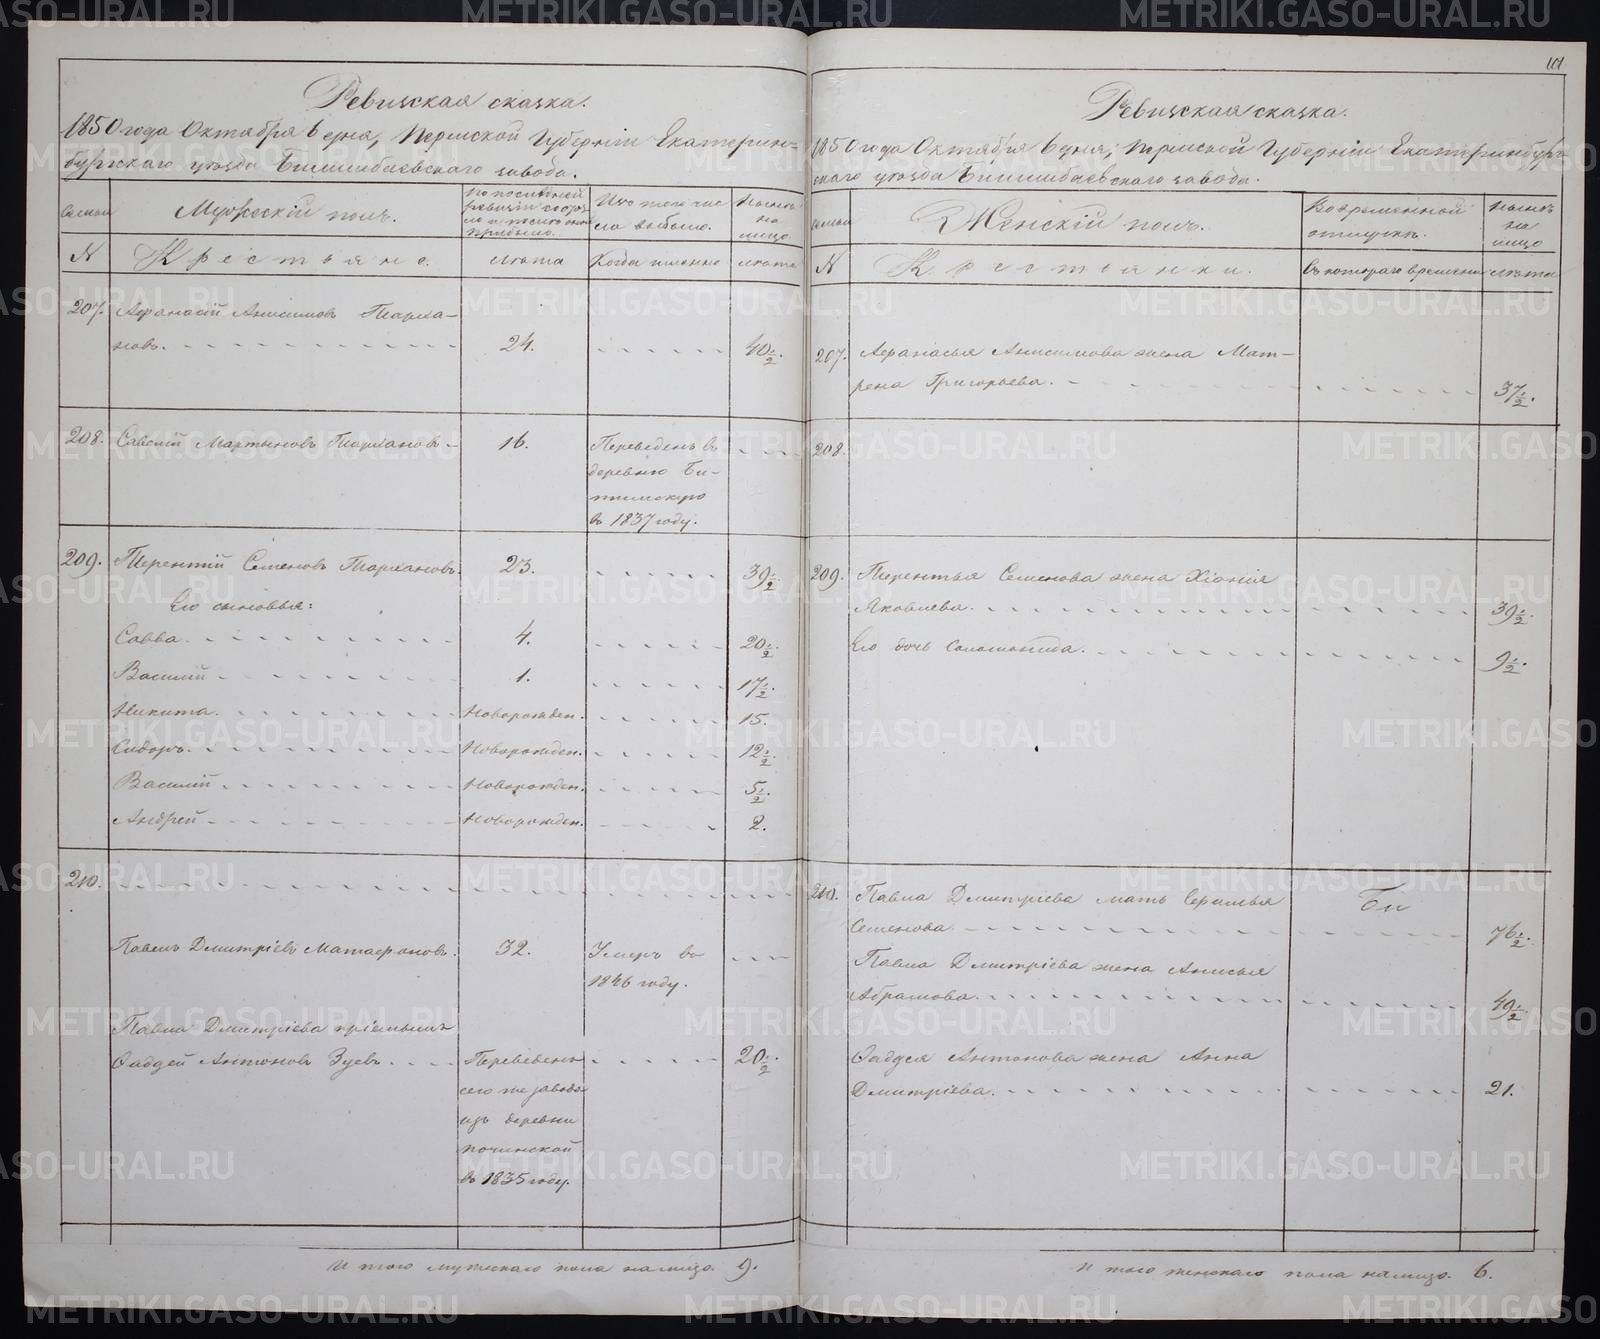 Ревизская сказка.
1850 года Октября 6 дня, Пермской Губерніи Екатерин-
бургскаго уѣзда Билимбаевскаго завода.
Семьи
Мужескій полъ.
По послѣдней
ревизіи состоя-
ло и послѣ оной
прибыло.
Изъ того чис
ла выбыло.
Нынѣ
на
лицо
N
Крестьяне.
лѣта
Когда именно
лѣта
207. Афанасій Анисимовъ Тарха-
новъ. 24. 40½.
208. Савелій Мартыновъ Тархановъ 16. Переведенъ въ
деревню Би-
тимскую
въ 1837 году.
209. Терентій Семеновъ Тархановъ. 23. 39½.
Его сыновья:
Савва. 4. 20½.
Василій 1. 17½.
Никита. Новорожден. 15.
Сидоръ. Новорожден. 12½.
Василій Новорожден. 5½.
Андрей Новорожден. 2.
210.
Павелъ Дмитріевъ Матафоновъ. 32. Умеръ въ
1846 году.
Павла Дмитріева пріемышъ
Фаддей Антоновъ Зуевъ. Переведенъ 20½.
сего же завода
изъ деревни
починской
въ 1835 году.
И того мужескаго пола налицо. 9.
101
Ревизская сказка.
1850 года Октября 6 дня, Пермской Губерніи Екатеринбург-
скаго уѣзда Билимбаевскаго завода.
Семьи
Женскій полъ.
Во временной
отлучкѣ.
Нынѣ
на
лицо
N
Крестьянки.
Съ котораго времени
лѣта
207. Афанасья Анисимова жена Мат-
рена Григорьева. 37½.
208.
209. Терентья Семенова жена Хіонія
Яковлева. 39½.
Его дочь Соломонида. 9½.
210. Павла Дмитріева мать
Семенова. 76½.
Павла Дмитріева жена Анисья
Абрамова. 49½.
Фаддея Антонова жена Анна
Дмитріева. 21.
И того женскаго пола налицо. 6.
METRIKI.GASO-URAL.RU